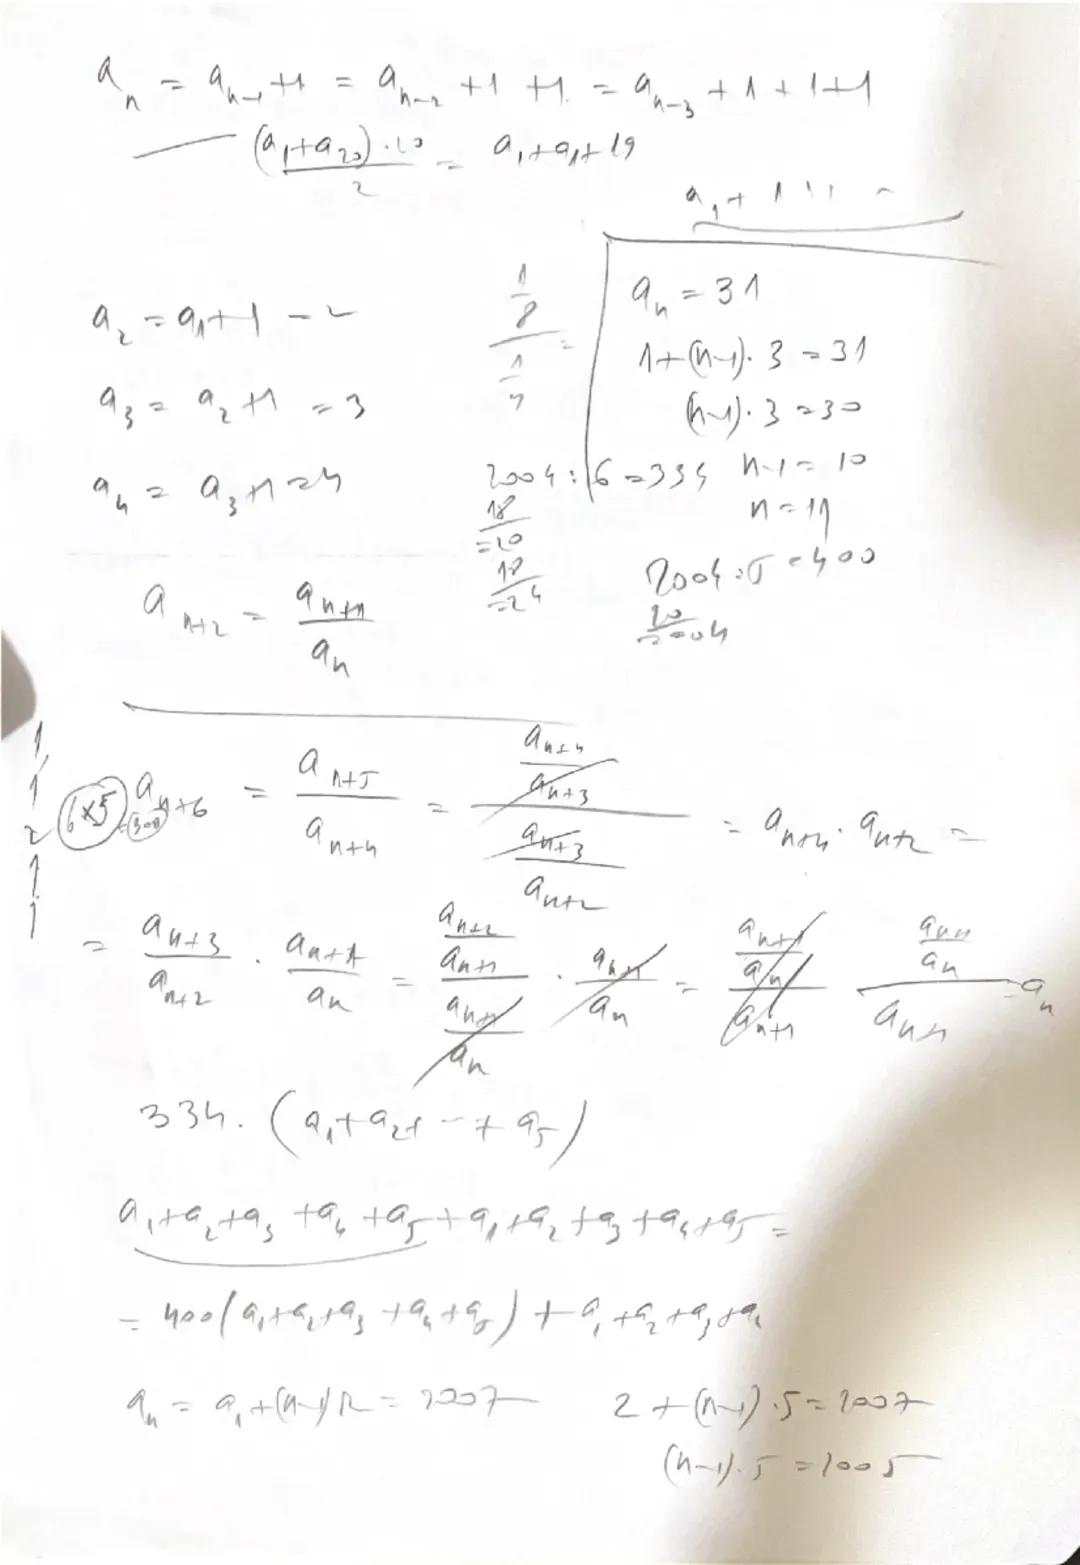 a_n = a_{n-1}+1 = a_{n-2} +1 +1 = a_{n-3} +1+1+1
(a_1+a_{20})·20 / 2 = a_1+a_1+19
a_1 + 1
a_2 = a_1+1 = 2
a_3 = a_2+1 = 3
a_4 = a_3+1 = 4
1/8 / 1/7 =
a_n = 31
1+(n-1)·3 = 31
(n-1)·3 = 30
n-1 = 10
n = 11
2004 : 6 = 334
18
=20
18
=24
2004 : 5 = 400
20
==04
a_{n+2} = a_{n+1} / a_n
1
1
2
1
1
6x5
a_{n+6} = a_{n+5} / a_{n+4} = a_{n+4} / a_{n+3} / a_{n+3} / a_{n+2} = a_{n+4} · a_{n+2} =
= a_{n+3} / a_{n+2} · a_{n+1} / a_n = a_{n+2} / a_{n+1} / a_{n+1} / a_n · a_{n+1} / a_n = a_{n+1} / a_n / a_{n+1} a_{n+1} / a_n / a_{n+1} = a_n
334. (a_1+a_2+ -- + a_5)
a_1+a_2+a_3+a_4+a_5+a_1+a_2+a_3+a_4+a_5 =
= 400(a_1+a_2+a_3+a_4+a_5) + a_1+a_2+a_3+a_4
a_n = a_1+(n-1)R = 2007
2+(n-1)·5 = 2007
(n-1)·5 = 2005